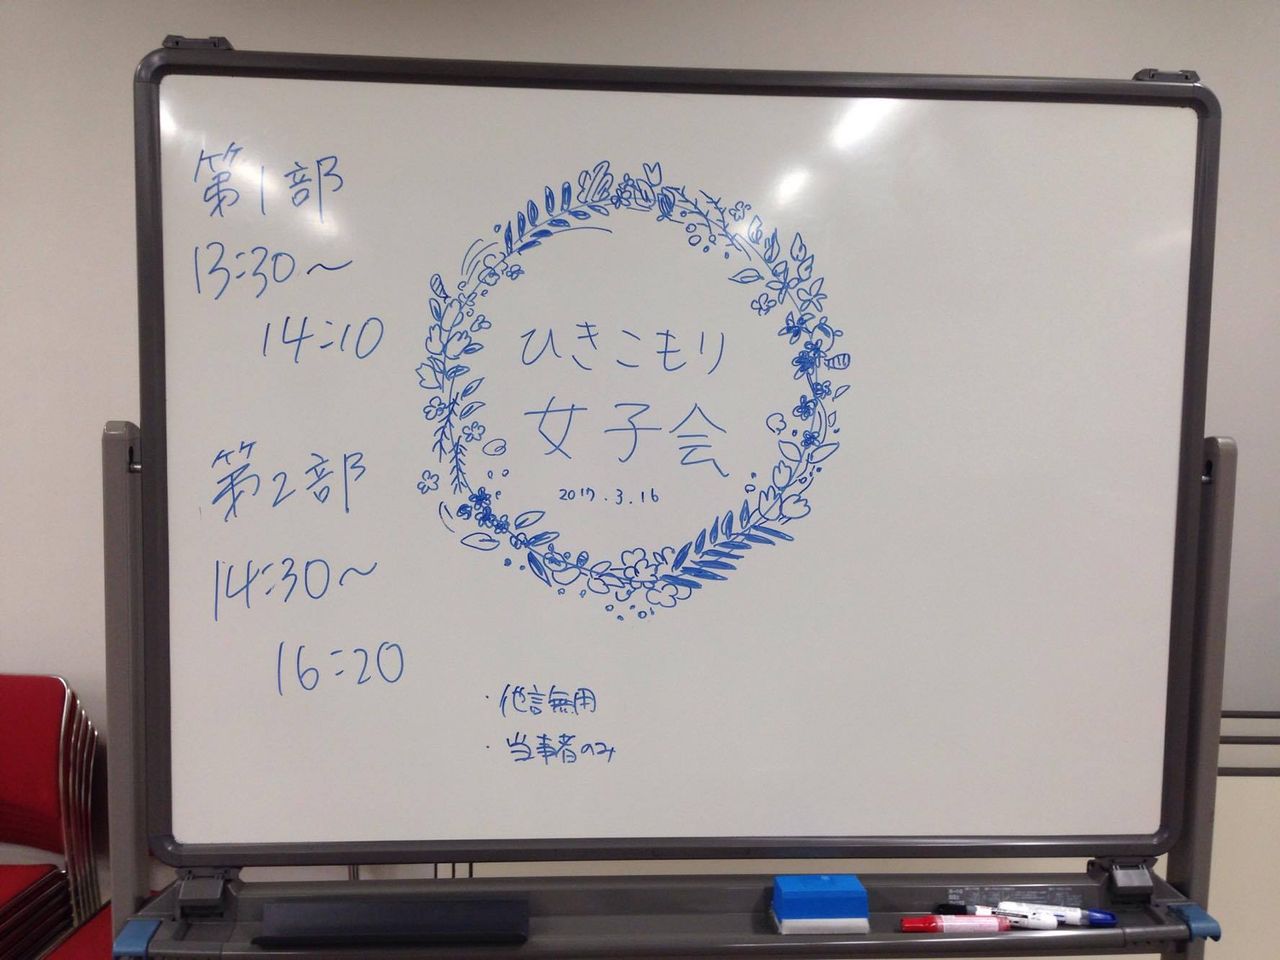 第1部
13:30～
14:10
第2部
14:30～
16:20
ひきこもり
女子会
2017.3.16
・他言無用
・当事者のみ